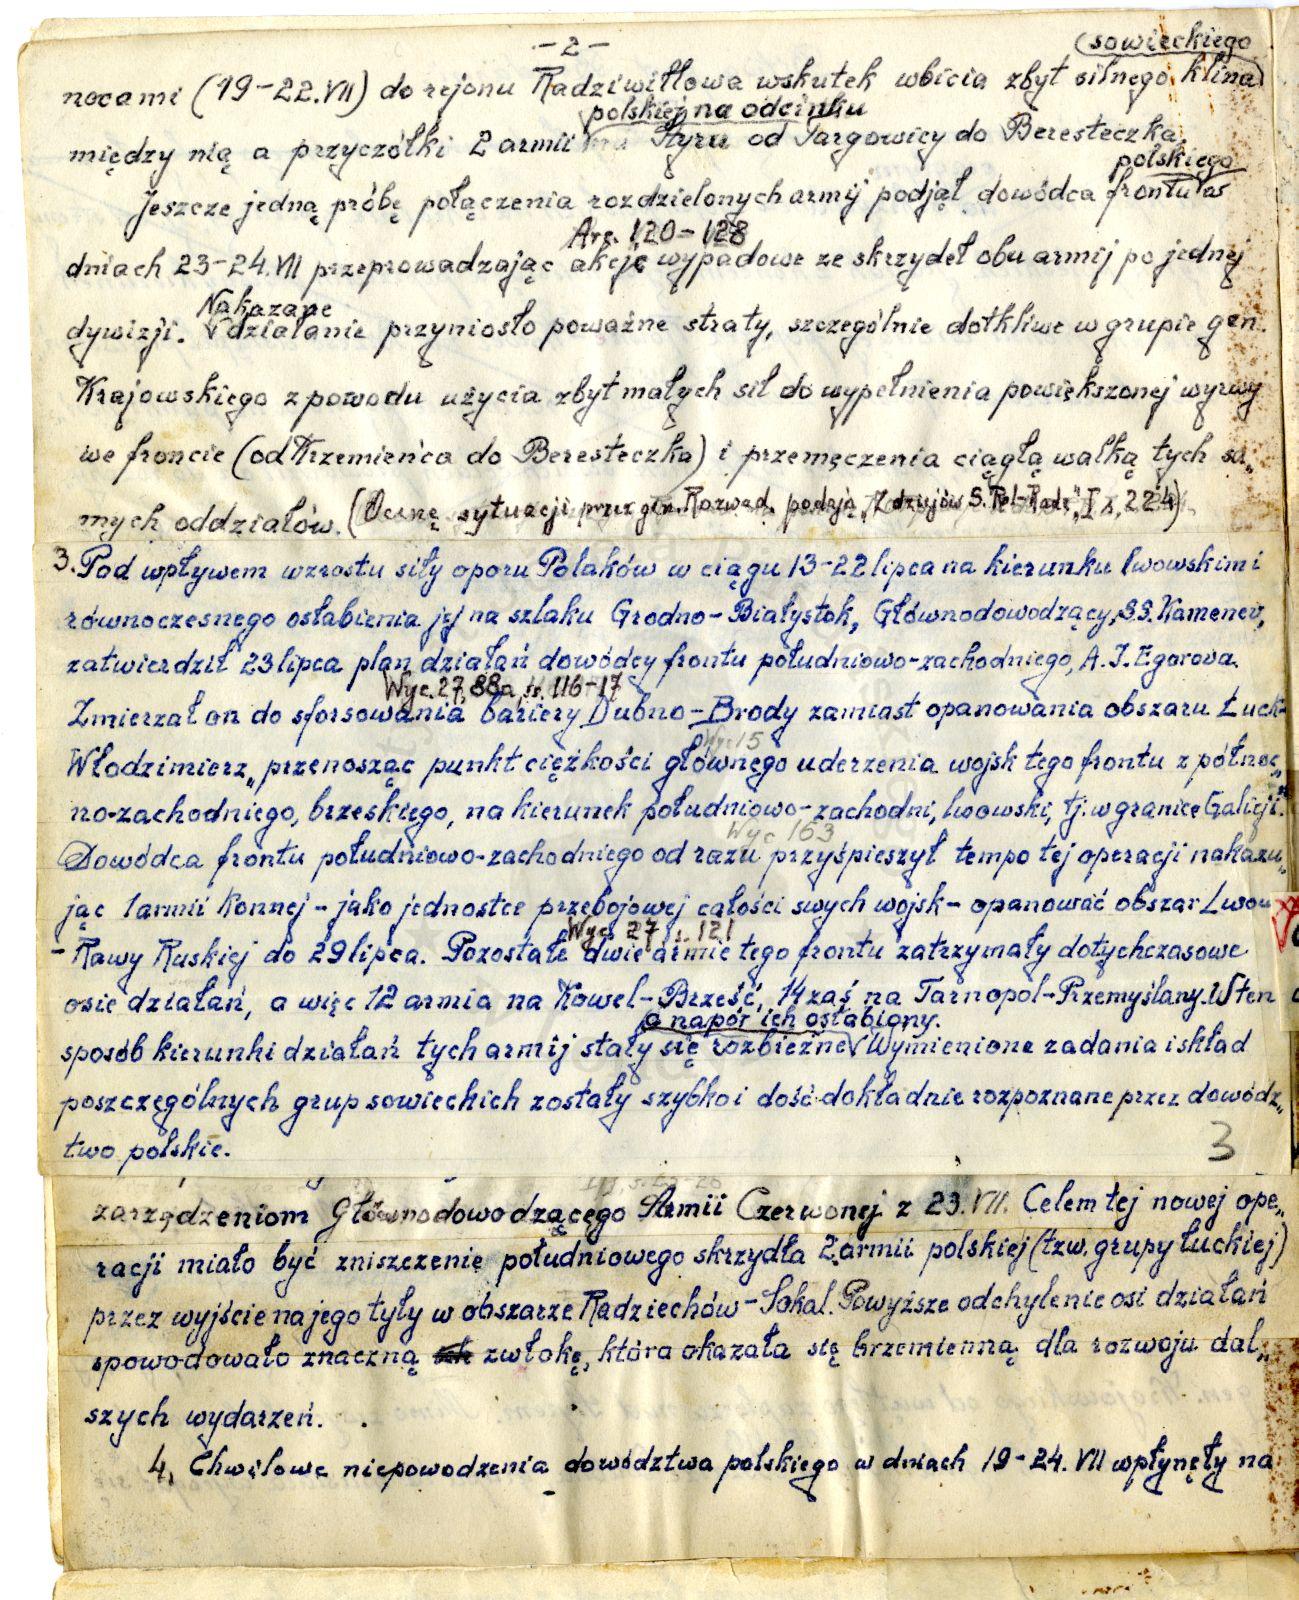 - 2 -
(sowieckiego
nocami (19-22.VII) do rejonu Radziwiłłowa wskutek wbicia zbyt silnego klina)
polskiej na odcinku
między nią a przyczółki 2 armii Styru od Targowicy do Beresteczka.
polskiego
Jeszcze jedną próbę połączenia rozdzielonych armij podjął dowódca frontu w
Arg. 120-128
dniach 23-24.VII przeprowadzając akcję wypadowe ze skrzydeł obu armij po jednej
Nakazane
dywizji. działanie przyniosło poważne straty, szczególnie dotkliwe w grupie gen.
Krajowskiego z powodu użycia zbyt małych sił do wypełnienia powiększonej wyrwy
we froncie (od Krzemieńca do Beresteczka) i przemęczenia ciągłą walką tych sa„
mych oddziałów. (Ocenę sytuacji przez gen. Rozwad. podają „Z dziejów S. Pol-Radz", I s, 224)
3. Pod wpływem wzrostu siły oporu Polaków w ciągu 13-22 lipca na kierunku lwowskim i
równoczesnego osłabienia jej na szlaku Grodno-Białystok, Głównodowodzący, S.S. Kamenev,
zatwierdził 23 lipca plan działań dowódcy frontu południowo-zachodniego, A.I. Egorova.
Wyc. 27, 88a, s. 116-17
Zmierzał on do sforsowania bariery Dubno-Brody zamiast opanowania obszaru Łuck-
Wyc 15
Włodzimierz, „przenosząc punkt ciężkości głównego uderzenia wojsk tego frontu z północ„
no-zachodniego, brzeskiego, na kierunek południowo-zachodni, lwowski, tj. w granice Galicji."
Wyc 163
Dowódca frontu południowo-zachodniego od razu przyśpieszył tempo tej operacji nakazu„
jąc 1 armii Konnej - jako jednostce przebojowej całości swych wojsk - opanować obszar Lwow
Wyc. 27, s. 121
- Rawy Ruskiej do 29 lipca. Pozostałe dwie armie tego frontu zatrzymały dotychczasowe
osie działań, a więc 12 armia na Kowel-Brześć, 14 zaś na Tarnopol-Przemyślany. W ten
a napór ich osłabiony.
sposób kierunki działań tych armij stały się rozbieżne Wymienione zadania i skład
poszczególnych grup sowieckich zostały szybko i dość dokładnie rozpoznane przez dowódz„
two polskie.
3
zarządzeniom Głównodowodzącego Armii Czerwonej z 23.VII. Celem tej nowej ope„
racji miało być zniszczenie południowego skrzydła 2 armii polskiej (tzw. grupy łuckiej)
przez wyjście na jego tyły w obszarze Radziechów-Sokal. Powyższe odchylenie osi działań
spowodowało znaczną zwłokę, która okazała się brzemienną dla rozwoju dal„
szych wydarzeń.
4. Chwilowe niepowodzenia dowództwa polskiego w dniach 19-24.VII wpłynęły na